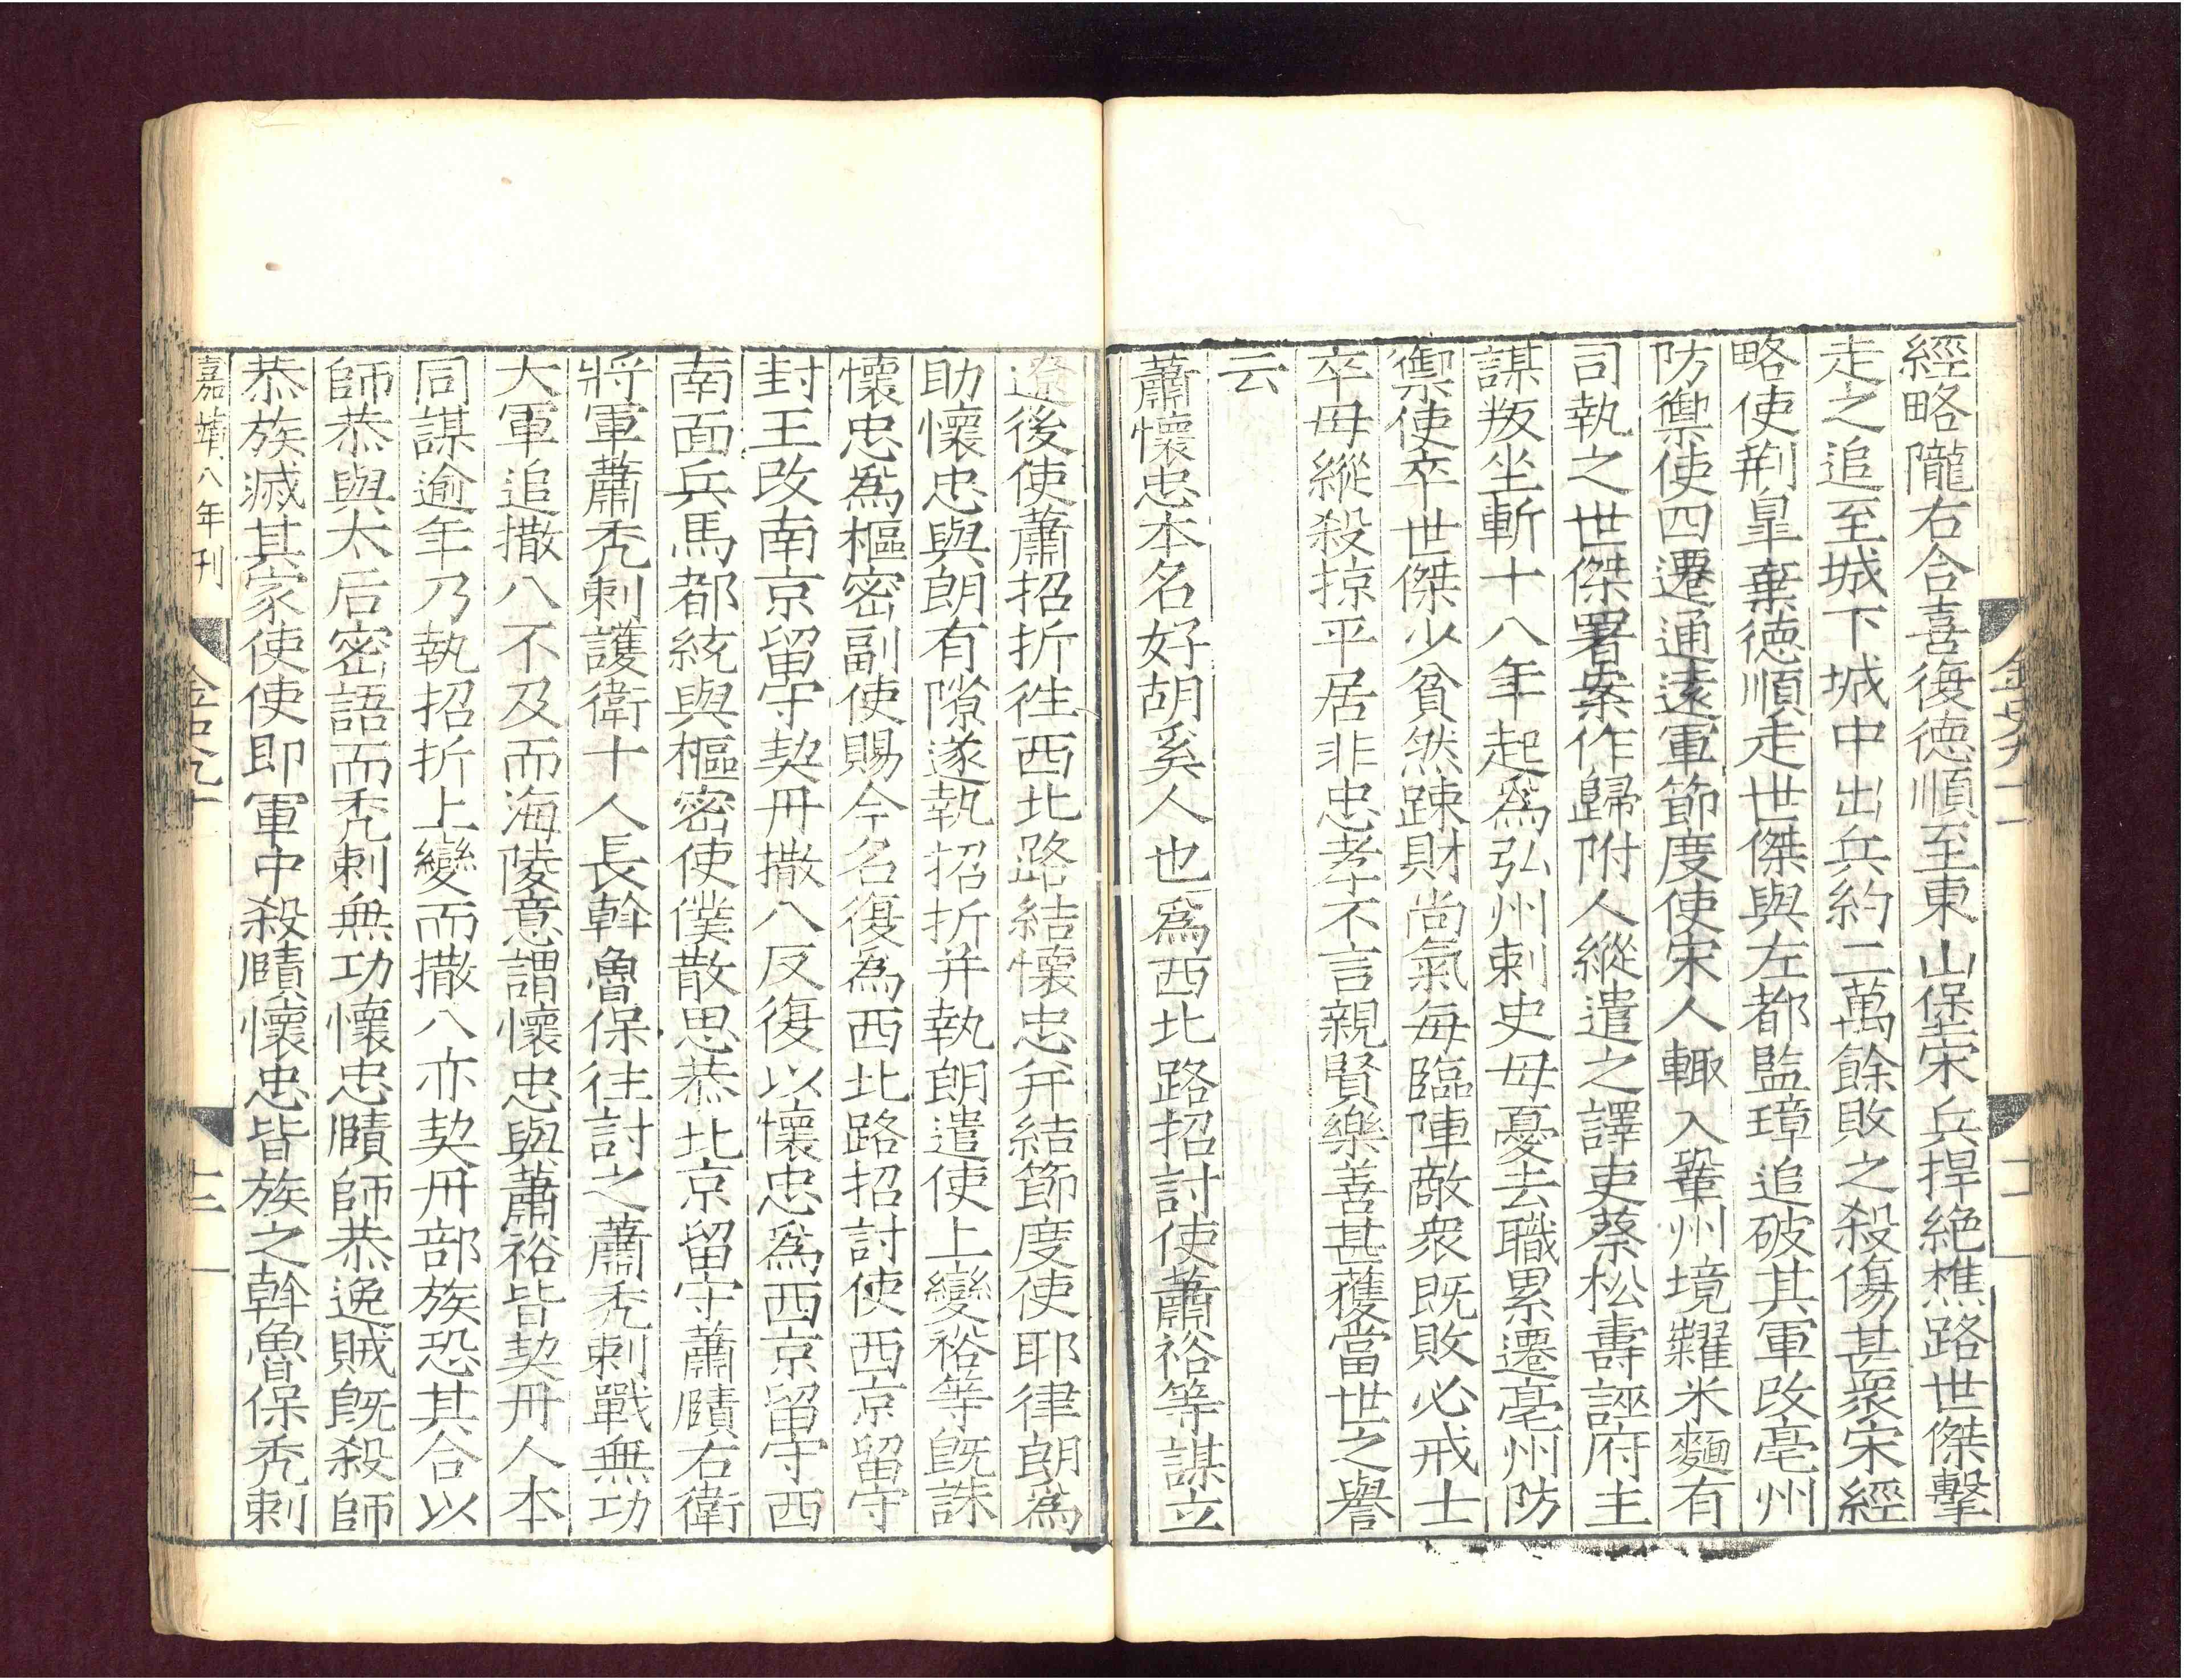 經略隴右合喜復德順至東山堡宋兵捍絕樵路世傑擊
走之追至城下城中出兵約二萬餘敗之殺傷甚衆宋經
略使荆臯棄德順走世傑與左都監璋追破其軍改亳州
防禦使四遷通遠軍節度使宋人輙入鞏州境糴米麵有
司執之世傑署案作歸附人縱遣之譯吏蔡松壽誣府主
謀叛坐斬十八年起爲弘州刺史母憂去職累遷亳州防
禦使卒世傑少貧然踈財尚氣每臨陣敵衆既敗必戒士
卒毋縱殺掠平居非忠孝不言親賢樂善甚獲當世之譽
云
蕭懷忠本名好胡奚人也爲西北路招討使蕭裕等謀立
遼後使蕭招折徃西北路結懷忠并結節度使耶律朗爲
助懷忠與朗有隙遂執招折并執朗遣使上變裕等旣誅
懷忠爲樞密副使賜今名復爲西北路招討使西京留守
封王改南京留守契丹撒八反復以懷忠爲西京留守西
南面兵馬都統與樞密使僕散思恭北京留守蕭賾右衛
將軍蕭秃剌護衛十人長斡魯保往討之蕭秃剌戰無功
大軍追撒八不及而海陵意謂懷忠與蕭裕皆契丹人本
同謀逾年乃執招折上變而撒八亦契丹部族恐其合以
師恭與太后密語而秃剌無功懷忠賾師恭逸賊旣殺師
恭族滅其家使使即軍中殺賾懷忠皆族之斡魯保秃剌
嘉靖八年刊
金史九十一
十三